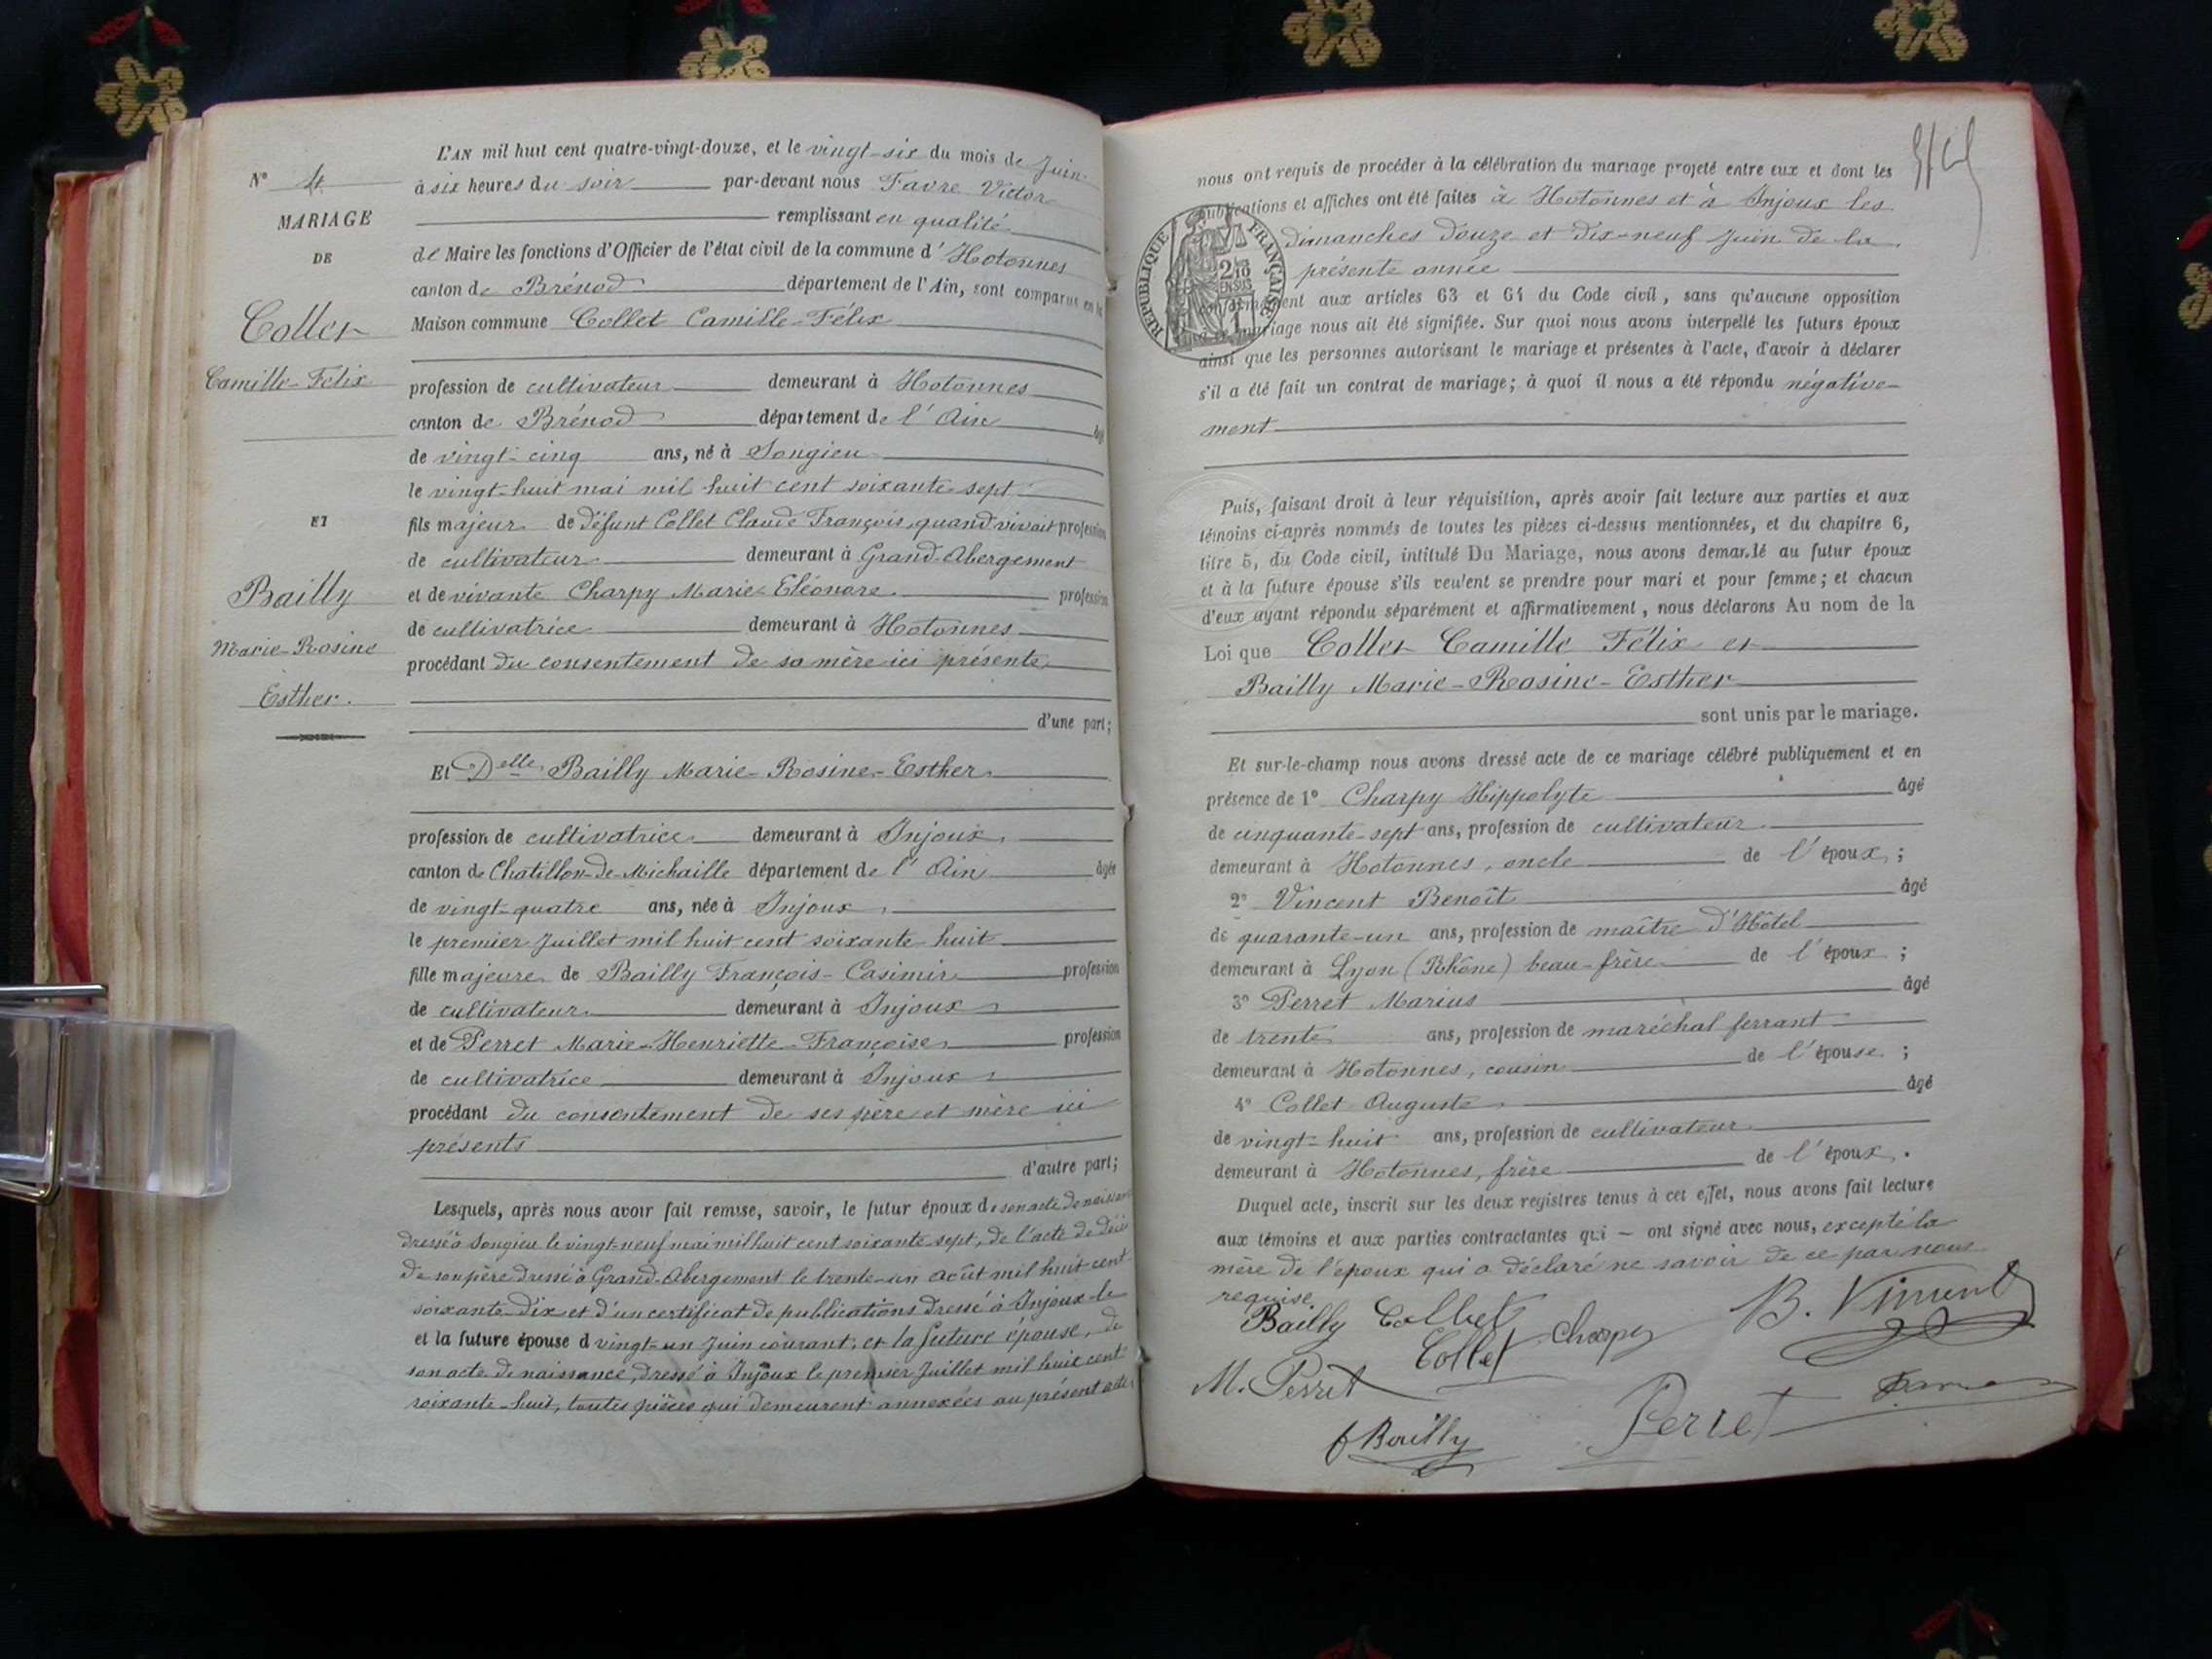 N° 4
MARIAGE
DE
Collet
Camille-Félix
ET
Bailly
Marie-Rosine
Esther.
L'AN mil huit cent quatre-vingt-douze, et le vingt-six du mois de Juin
à six heures du soir par-devant nous Favre Victor
remplissant en qualité
de Maire les fonctions d'Officier de l'état civil de la commune d'Hotonnes
canton de Brénod département de l'Ain, sont comparus en la
Maison commune Collet Camille-Félix
profession de cultivateur demeurant à Hotonnes
canton de Brénod département de l'Ain âgé
de vingt-cinq ans, né à Songieu
le vingt-huit mai mil huit cent soixante sept
fils majeur de défunt Collet Claude François, quand vivait profession
de cultivateur demeurant à Grand-Abergement
et de vivante Charpy Marie-Eléonore profession
de cultivatrice demeurant à Hotonnes
procédant du consentement de sa mère ici présente
d'une part;
Et Delle Bailly Marie-Rosine-Esther
profession de cultivatrice demeurant à Injoux
canton de Chatillon-de-Michaille département de l'Ain âgée
de vingt-quatre ans, née à Injoux
le premier Juillet mil huit cent soixante huit
fille majeure de Bailly François-Casimir profession
de cultivateur demeurant à Injoux
et de Perret Marie-Henriette-Françoise profession
de cultivatrice demeurant à Injoux
procédant du consentement de ses père et mère ici
présents
d'autre part;
Lesquels, après nous avoir fait remise, savoir, le futur époux de son acte de naissance
dressé à Songieu le vingt-neuf mai mil huit cent soixante sept, de l'acte de décès
de son père dressé à Grand-Abergement le trente-un août mil huit cent
soixante-dix et d'un certificat de publications dressé à Injoux le
et la future épouse d vingt-un Juin courant, et la future épouse, de
son acte de naissance, dressé à Injoux le premier Juillet mil huit cent
soixante-huit, toutes pièces qui demeurent annexées au présent acte
nous ont requis de procéder à la célébration du mariage projeté entre eux et dont les
publications et affiches ont été faites à Hotonnes et à Injoux les
dimanches douze et dix-neuf Juin de la
présente année
conformément aux articles 63 et 64 du Code civil, sans qu'aucune opposition
à ce mariage nous ait été signifiée. Sur quoi nous avons interpellé les futurs époux
ainsi que les personnes autorisant le mariage et présentes à l'acte, d'avoir à déclarer
s'il a été fait un contrat de mariage; à quoi il nous a été répondu négative-
ment
RÉPUBLIQUE FRANÇAISE
2/10
EN SUS
Puis, faisant droit à leur réquisition, après avoir fait lecture aux parties et aux
témoins ci-après nommés de toutes les pièces ci-dessus mentionnées, et du chapitre 6,
titre 5, du Code civil, intitulé Du Mariage, nous avons demandé au futur époux
et à la future épouse s'ils veulent se prendre pour mari et pour femme; et chacun
d'eux ayant répondu séparément et affirmativement, nous déclarons Au nom de la
Loi que Collet Camille Félix et
Bailly Marie-Rosine-Esther
sont unis par le mariage.
Et sur-le-champ nous avons dressé acte de ce mariage célébré publiquement et en
présence de 1° Charpy Hippolyte âgé
de cinquante-sept ans, profession de cultivateur
demeurant à Hotonnes, oncle de l'époux;
2° Vincent Benoît âgé
de quarante-un ans, profession de maître d'Hôtel
demeurant à Lyon (Rhône) beau-frère de l'époux;
3° Perret Marius âgé
de trente ans, profession de maréchal ferrant
demeurant à Hotonnes, cousin de l'épouse;
4° Collet Auguste âgé
de vingt-huit ans, profession de cultivateur
demeurant à Hotonnes, frère de l'époux.
Duquel acte, inscrit sur les deux registres tenus à cet effet, nous avons fait lecture
aux témoins et aux parties contractantes qui — ont signé avec nous, excepté la
mère de l'époux qui a déclaré ne savoir de ce par nous
requise
Bailly Collet B. Vincent
Collet Charpy
M. Perret
Perret Favre
f Bailly